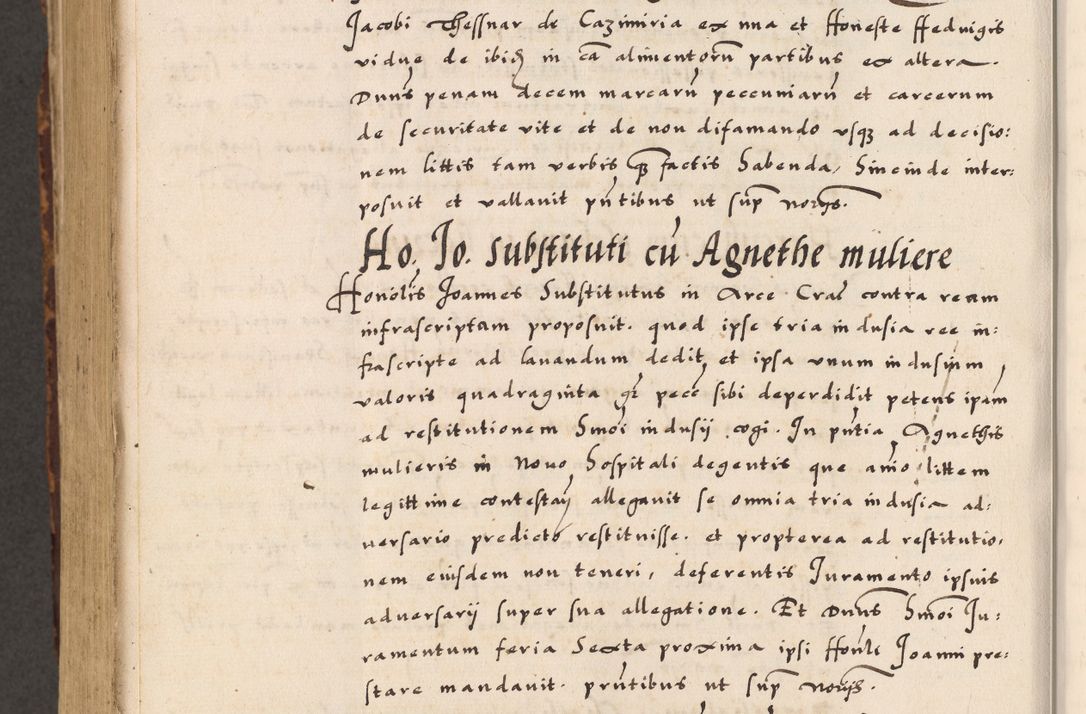 Jacobi Thessnar de Cazimiria ex una et Honeste Heduigis
vidue de ibid in ca alimentorũ partibus ex altera.
Dun̄s penam decem marcarũ peccuniarũ et carcerum
de securitate vite et de non difamando usq ad decisio:
nem littis tam verbis q̃ factis habenda, hincinde inter:
posuit et vallavit pñtibus ut sup̃ noẽs.
Ho. Jo. substituti cũ Agnethe muliere
Honõlis Joannes Substitutus in Arce Crac̃ contra ream
infrascriptam proposuit. quod ipse tria indusia ree in:
frascripte ad lavandum dedit, et ipsa unum indusium,
valoris quadraginta gr pecc̃ sibi deperdidit petens ipam
ad restitutionem hm̃oi indusii cogi. In pñtia Agnethis
mulieris in Novo hospitali degentis que aĩo littem
legittime contestaṇ allegavit se omnia tria indusia ad:
versario predicto restituisse. et propterea ad restitutio,
nem eiusdem non teneri, deferentis Juramento ipsius
adversarii super sua allegatione. Et Dun̄s hm̃oi Ju:
ramentum feria Sexta proxima ipsi Hon̄li Joanni pre:
stare mandavit. prñtibus ut sup̃ noĩs.